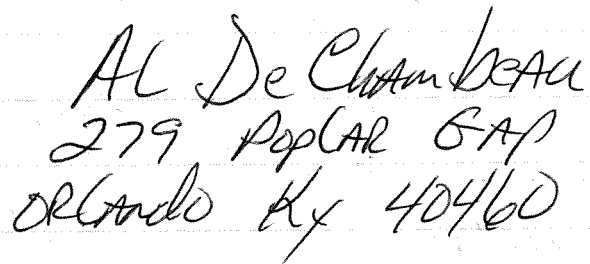 AL DeChambeau
279 Poplar GAP
ORLando Ky 40460